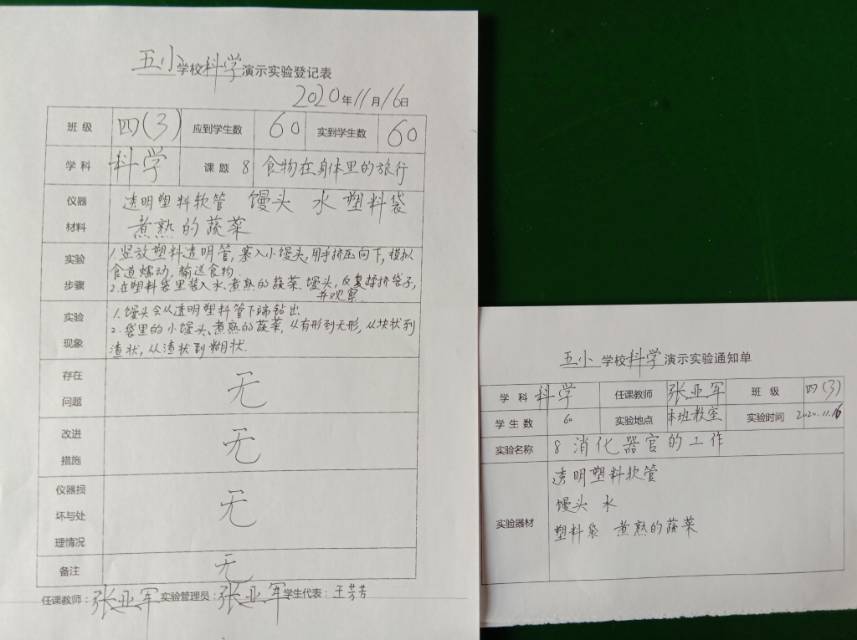 五小学校科学演示实验登记表
2020年11月16日
班级 四(3) 应到学生数 60 实到学生数 60
学科 科学 课题 8 食物在身体里的旅行
仪器材料 透明塑料软管 馒头 水 塑料袋
煮熟的蔬菜
实验步骤 1.竖放塑料透明管,塞入小馒头,用手挤压向下,模拟
食道蠕动,输送食物.
2.在塑料袋里装入水,煮熟的蔬菜.馒头,反复揉挤袋子,
并观察.
实验现象 1.馒头会从透明塑料管下端钻出
2.袋里的小馒头、煮熟的蔬菜,从有形到无形,从块状到
渣状,从渣状到糊状.
存在问题 无
改进措施 无
仪器损坏与处理情况 无
备注 无
任课教师:张亚军 实验管理员:张亚军 学生代表:王芳芳
五小学校科学演示实验通知单
学科 科学 任课教师 张亚军 班级 四(3)
学生数 60 实验地点 本班教室 实验时间 2020.11.16
实验名称 8 消化器官的工作
实验器材 透明塑料软管
馒头 水
塑料袋 煮熟的蔬菜